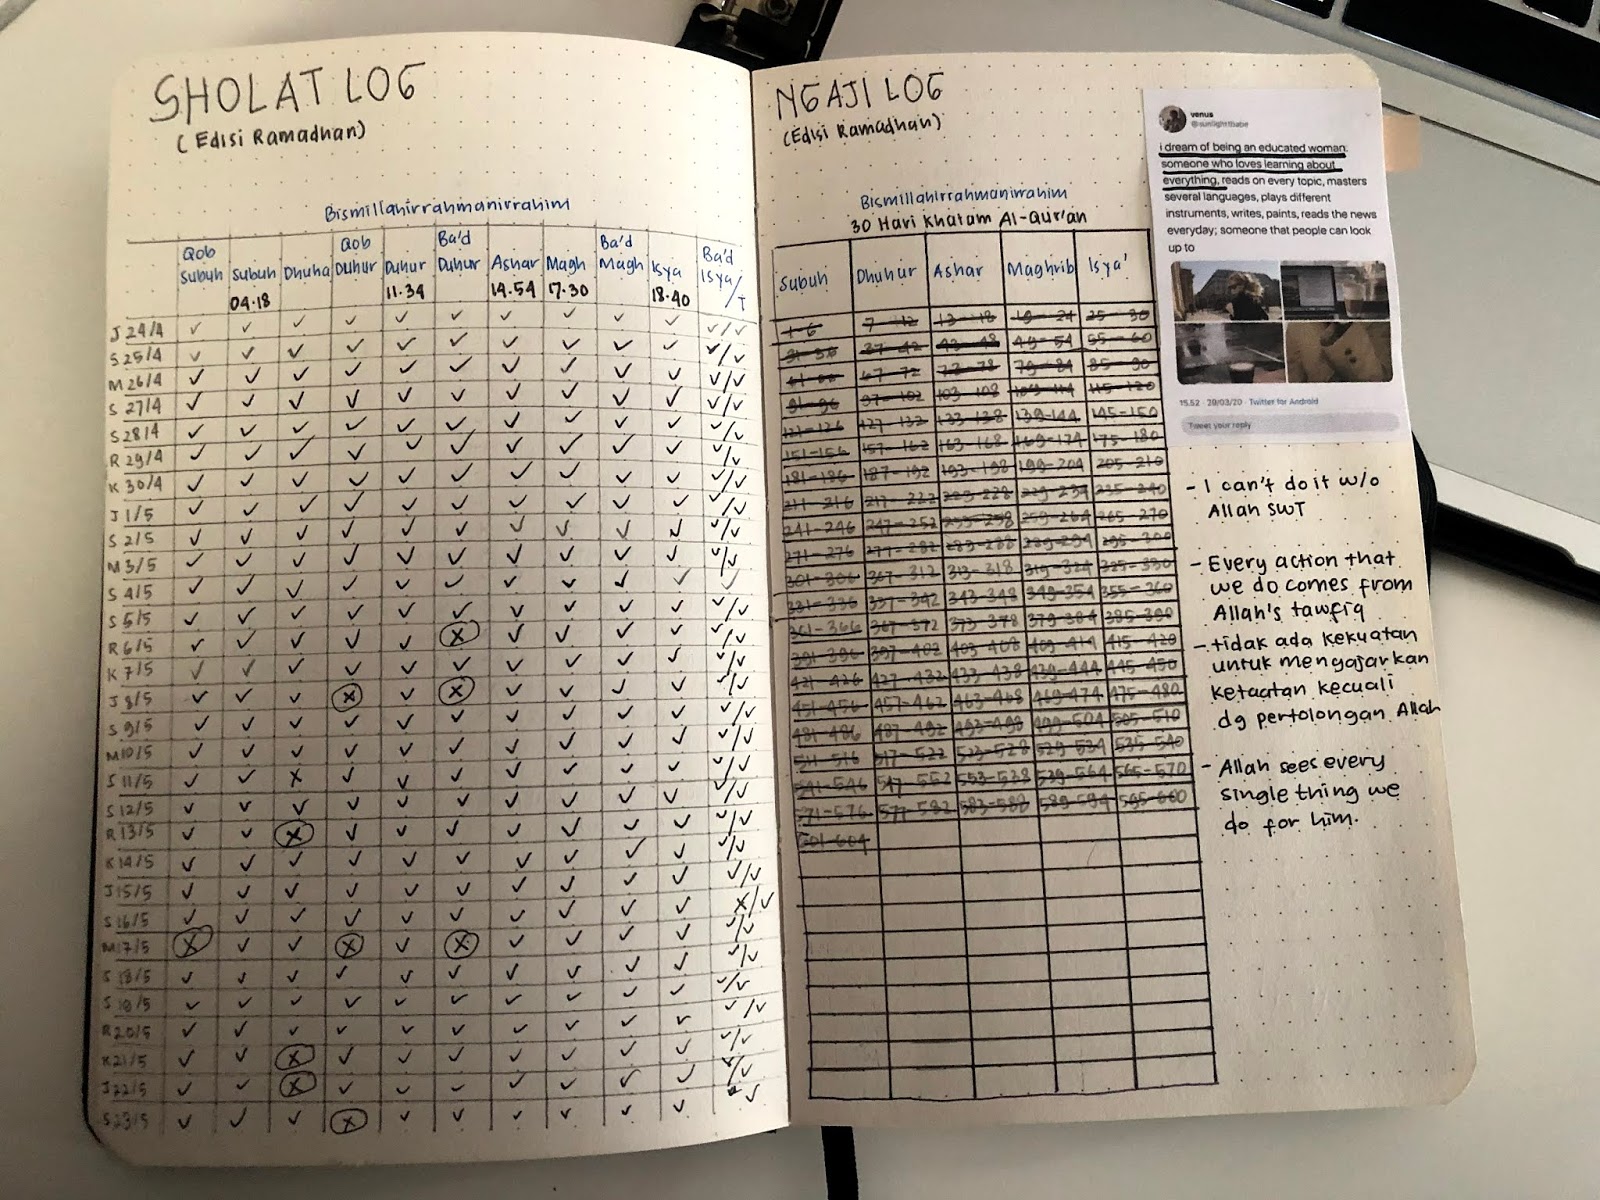 SHOLAT LOG
(Edisi Ramadhan)
Bismillahirrahmanirrahim
Qob Subuh
Subuh 04.18
Dhuha
Qob Duhur
Duhur 11.34
Ba'd Duhur
Ashar 14.54
Magh 17.30
Ba'd Magh
Isya 18.40
Ba'd Isya/T
J 24/4 ✓ ✓ ✓ ✓ ✓ ✓ ✓ ✓ ✓ ✓ ✓/✓
S 25/4 ✓ ✓ ✓ ✓ ✓ ✓ ✓ ✓ ✓ ✓ ✓/✓
M 26/4 ✓ ✓ ✓ ✓ ✓ ✓ ✓ ✓ ✓ ✓ ✓/✓
S 27/4 ✓ ✓ ✓ ✓ ✓ ✓ ✓ ✓ ✓ ✓ ✓/✓
S 28/4 ✓ ✓ ✓ ✓ ✓ ✓ ✓ ✓ ✓ ✓ ✓/✓
R 29/4 ✓ ✓ ✓ ✓ ✓ ✓ ✓ ✓ ✓ ✓ ✓/✓
K 30/4 ✓ ✓ ✓ ✓ ✓ ✓ ✓ ✓ ✓ ✓ ✓/✓
J 1/5 ✓ ✓ ✓ ✓ ✓ ✓ ✓ ✓ ✓ ✓ ✓/✓
S 2/5 ✓ ✓ ✓ ✓ ✓ ✓ ✓ ✓ ✓ ✓ ✓/✓
M 3/5 ✓ ✓ ✓ ✓ ✓ ✓ ✓ ✓ ✓ ✓ ✓/✓
S 4/5 ✓ ✓ ✓ ✓ ✓ ✓ ✓ ✓ ✓ ✓
S 5/5 ✓ ✓ ✓ ✓ ✓ ✓ ✓ ✓ ✓ ✓ ✓/✓
R 6/5 ✓ ✓ ✓ ✓ ✓ ⓧ ✓ ✓ ✓ ✓ ✓/✓
K 7/5 ✓ ✓ ✓ ✓ ✓ ✓ ✓ ✓ ✓ ✓ ✓/✓
J 8/5 ✓ ✓ ✓ ⓧ ✓ ⓧ ✓ ✓ ✓ ✓ ✓/✓
S 9/5 ✓ ✓ ✓ ✓ ✓ ✓ ✓ ✓ ✓ ✓ ✓/✓
M 10/5 ✓ ✓ ✓ ✓ ✓ ✓ ✓ ✓ ✓ ✓ ✓/✓
S 11/5 ✓ ✓ x ✓ ✓ ✓ ✓ ✓ ✓ ✓ ✓/✓
S 12/5 ✓ ✓ ✓ ✓ ✓ ✓ ✓ ✓ ✓ ✓ ✓/✓
R 13/5 ✓ ✓ ⓧ ✓ ✓ ✓ ✓ ✓ ✓ ✓ ✓/✓
K 14/5 ✓ ✓ ✓ ✓ ✓ ✓ ✓ ✓ ✓ ✓ ✓/✓
J 15/5 ✓ ✓ ✓ ✓ ✓ ✓ ✓ ✓ ✓ ✓ ✓/✓
S 16/5 ✓ ✓ ✓ ✓ ✓ ✓ ✓ ✓ ✓ ✓ x/✓
M 17/5 ⓧ ✓ ✓ ⓧ ✓ ⓧ ✓ ✓ ✓ ✓ ✓/✓
S 18/5 ✓ ✓ ✓ ✓ ✓ ✓ ✓ ✓ ✓ ✓ ✓/✓
S 19/5 ✓ ✓ ✓ ✓ ✓ ✓ ✓ ✓ ✓ ✓ ✓/✓
R 20/5 ✓ ✓ ✓ ✓ ✓ ✓ ✓ ✓ ✓ ✓ ✓/✓
K 21/5 ✓ ✓ ⓧ ✓ ✓ ✓ ✓ ✓ ✓ ✓ ✓/✓
J 22/5 ✓ ✓ ⓧ ✓ ✓ ✓ ✓ ✓ ✓ ✓ ✓/✓
S 23/5 ✓ ✓ ✓ ⓧ ✓ ✓ ✓ ✓ ✓ ✓ ✓
NGAJI LOG
(Edisi Ramadhan)
Bismillahirrahmanirrahim
30 Hari Khatam Al-Qur'an
Subuh Dhuhur Ashar Maghrib Isya'
1-6 7-12 13-18 19-24 25-30
31-36 37-42 43-48 49-54 55-60
61-66 67-72 73-78 79-84 85-90
91-96 97-102 103-108 109-114 115-120
121-126 127-132 133-138 139-144 145-150
151-156 157-162 163-168 169-174 175-180
181-186 187-192 193-198 199-204 205-210
211-216 217-222 223-228 229-234 235-240
241-246 247-252 253-258 259-264 265-270
271-276 277-282 283-288 289-294 295-300
301-306 307-312 313-318 319-324 325-330
331-336 337-342 343-348 349-354 355-360
361-366 367-372 373-378 379-384 385-390
391-396 397-402 403-408 409-414 415-420
421-426 427-432 433-438 439-444 445-450
451-456 457-462 463-468 469-474 475-480
481-486 487-492 493-498 499-504 505-510
511-516 517-522 523-528 529-534 535-540
541-546 547-552 553-558 559-564 565-570
571-576 577-582 583-588 589-594 595-600
601-604
venus
@sunlightbabe
i dream of being an educated woman.
someone who loves learning about
everything, reads on every topic, masters
several languages, plays different
instruments, writes, paints, reads the news
everyday; someone that people can look
up to
15.52 · 29/03/20 · Twitter for Android
Tweet your reply
- I can't do it w/o
Allah SWT
- Every action that
we do comes from
Allah's tawfiq
- tidak ada kekuatan
untuk mengajarkan
ketaatan kecuali
dg pertolongan Allah
- Allah sees every
single thing we
do for him.